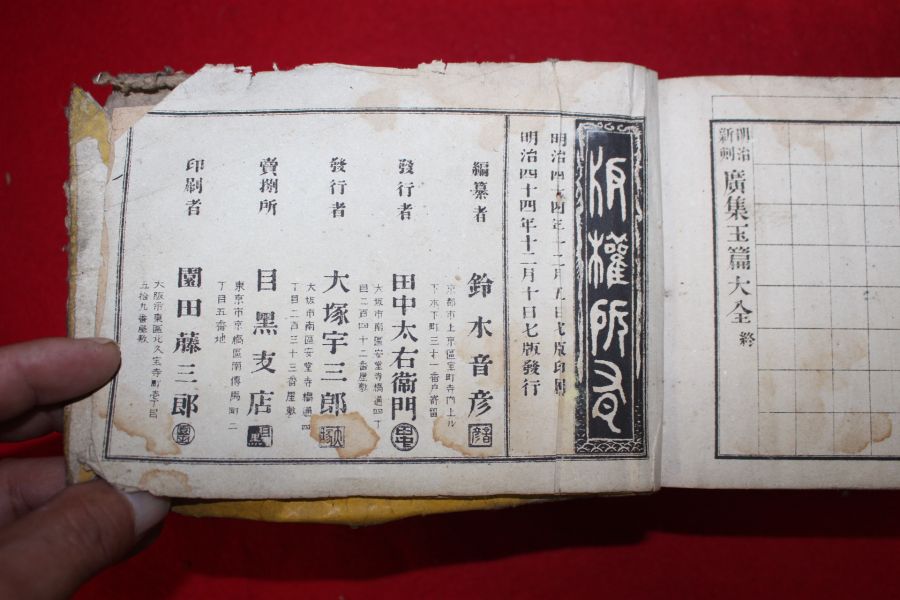 明治
新刻
廣集玉篇大全 終
版權所有
明治四十四年十二月五日七版印刷
明治四十四年十二月十日七版發行
編纂者
鈴木音彦
京都市上京區室町寺ノ内上ル
下木下町三十一番戸寄留
發行者
田中太右衞門
大坂市南區安堂寺橋通四丁
目二百四十二番屋敷
發行者
大塚宇三郎
大坂市南區安堂寺橋通四
丁目二百三十三番屋敷
賣捌所
目黑支店
東京市京橋區南傳馬町二
丁目五番地
印刷者
園田藤三郎
大阪市東區北久宝寺町壱丁目
五拾九番屋敷